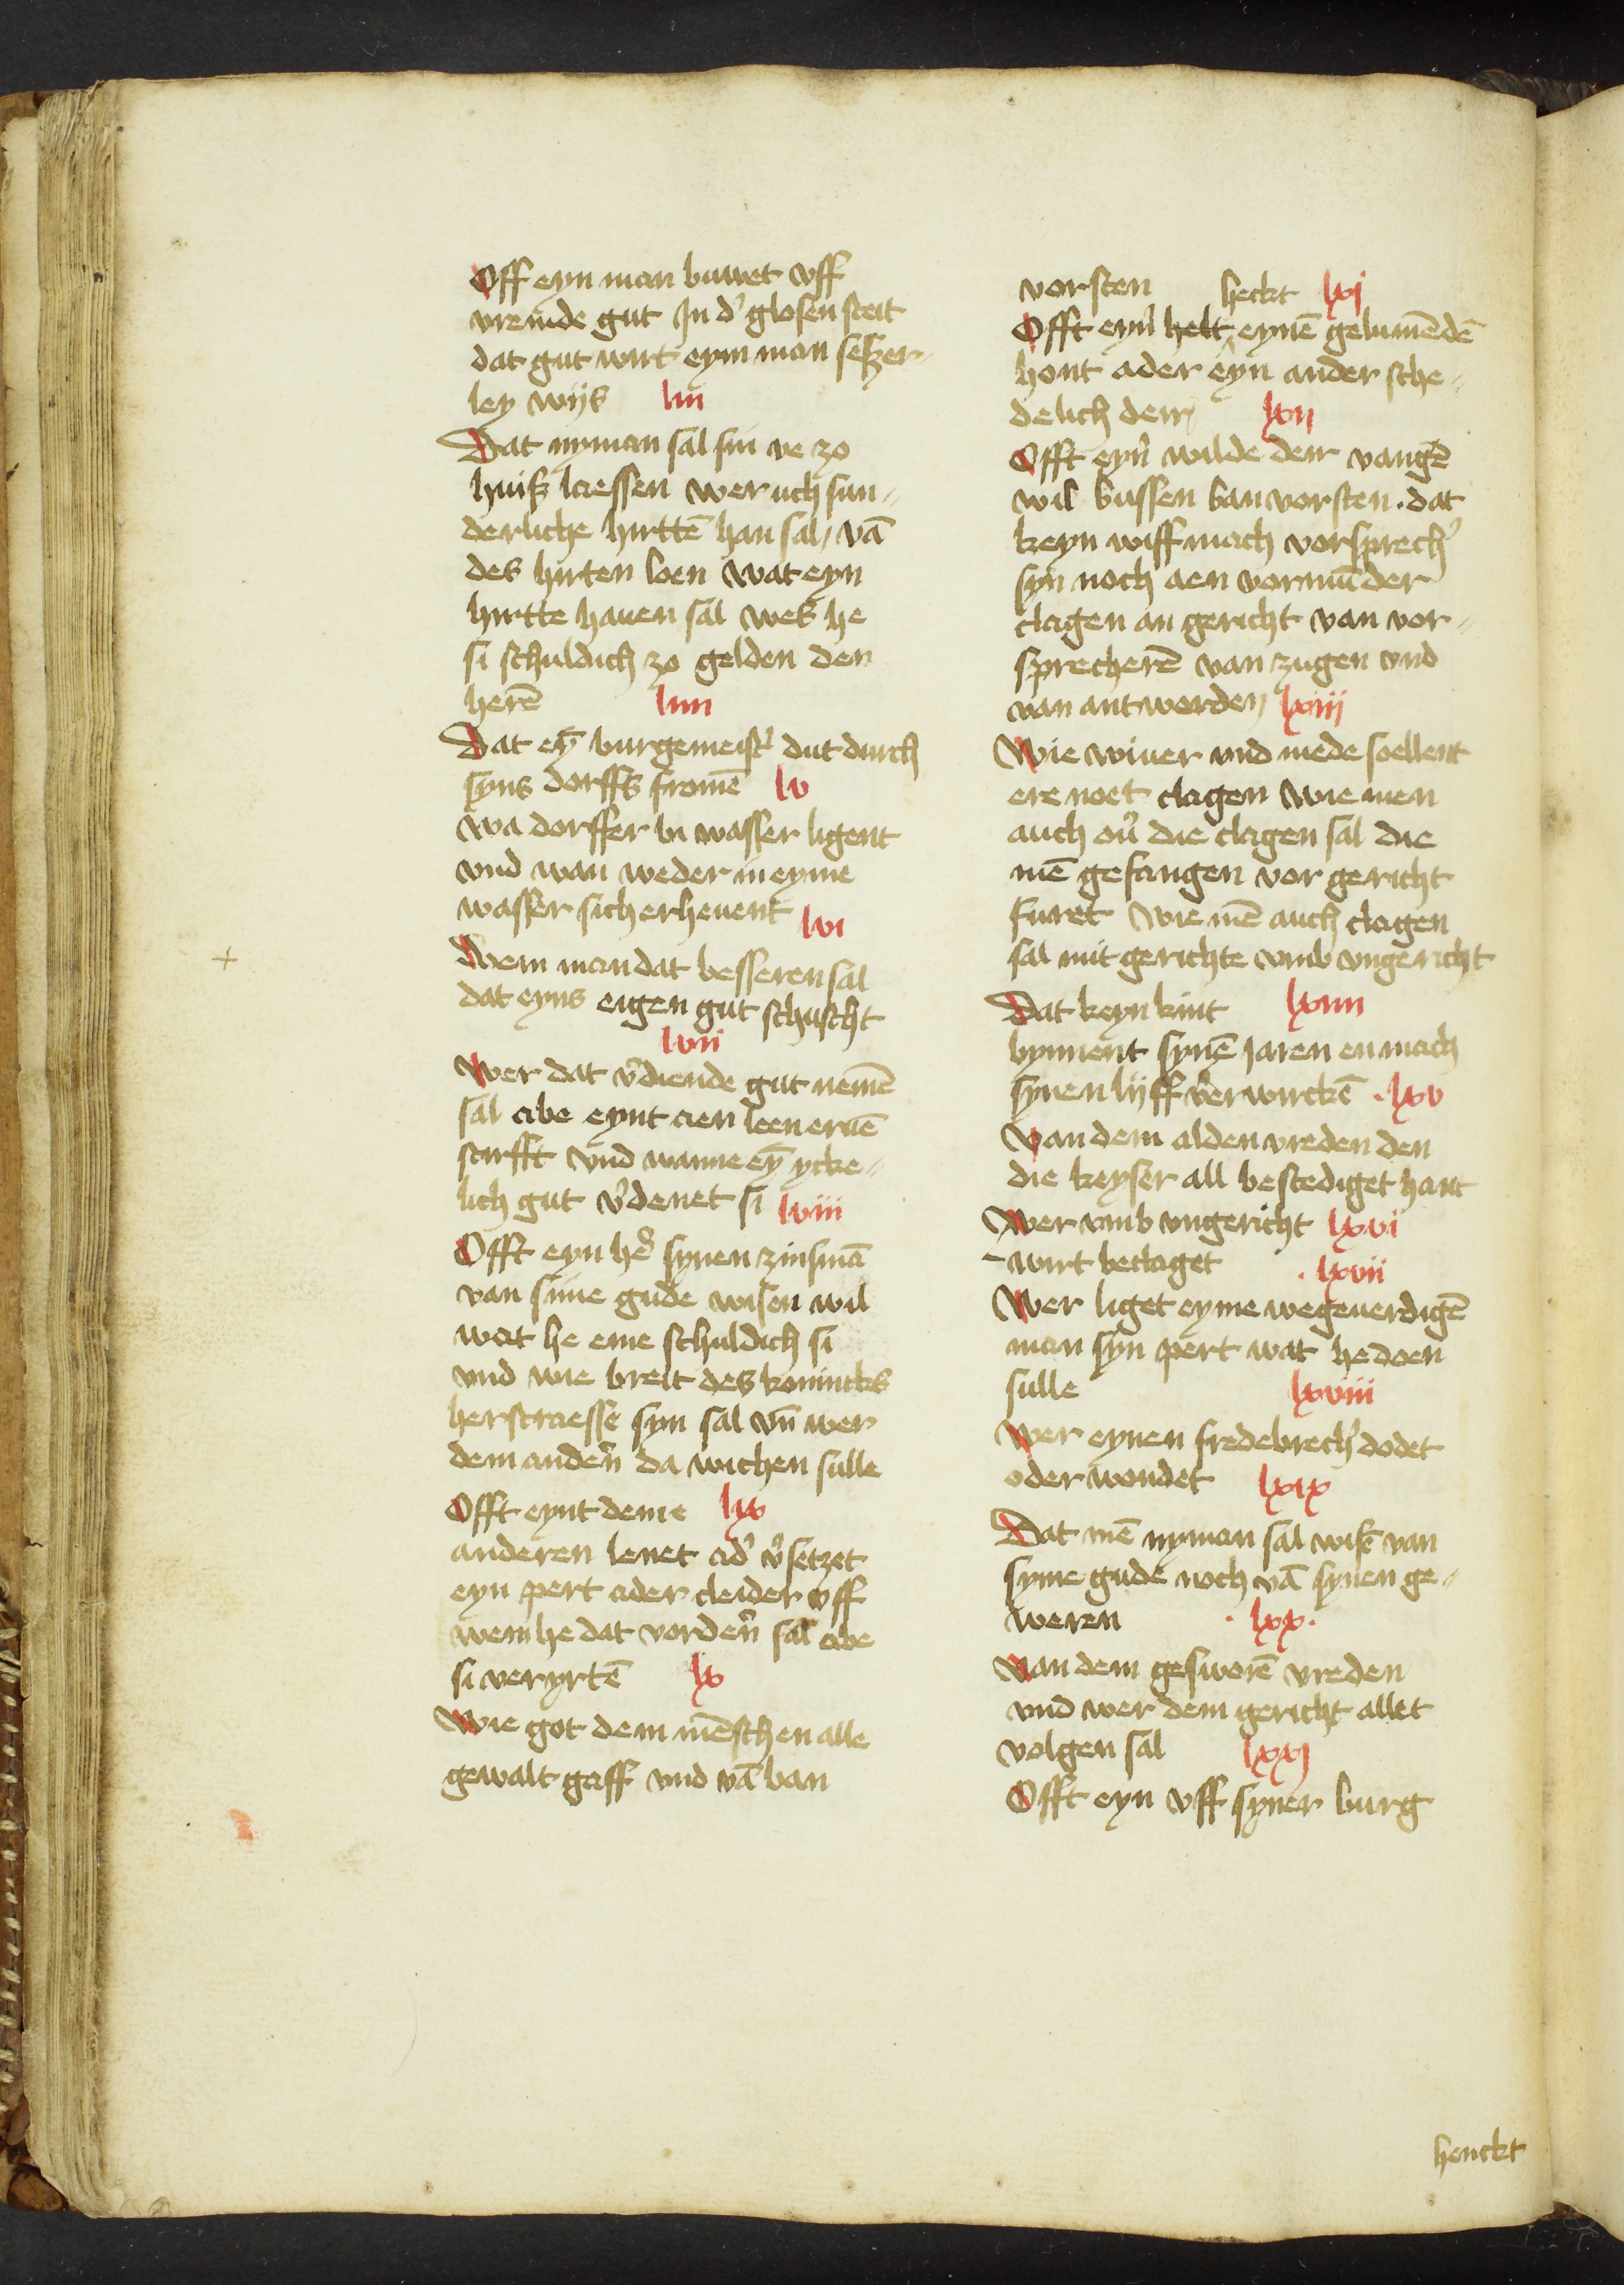 Off eyn man buwet vff
vremde gut In d' glosen steit
dat gut wirt eym man seszer-
ley wijs liii
Dat nyman sal sin ve zo
huisz laessen wer uch sun-
derliche hirttē han sal, vā
des hirten loen wat eyn
hirtte hauen sal wes he
si schuldich zo gelden den
herē liiii
Dat eȳ burgemeist' dut durch
syns dorffs fromē lv
wa dorffer bi wasser ligent
vnd wan weder in eyme
wasser sich erheuent lvi
Wem man dat besseren sal
dat eyns eigen gut schuscht
lvii
Wer dat v'diende gut nemē
sal abe eynt aen leen eruē
stirfft vnd wanne eȳ ycke-
lich gut v'denet si lviii
Offt eyn he' synen zinsmā
van sime gude wisen wil
wat he eme schuldich si
vnd wie breit des konincks
herstraesse syn sal vn̄ wer
dem anden̄ da wichen sulle
Offt eynt deme lix
anderen lenet ad' v'setzet
eyn pert ader cleider vff
wem he dat vorden̄ sal abe
si veryrtē lx
Wie got dem mēschen alle
gewalt gaff vnd vā ban
vorsten heckt lxj
Offt eyn helt eynē gelumēdē
hont ader eyn ander sche-
delich deir lxii
Offt eyn wilde deir vangē
wil bussen banvorsten. dat
keyn wiff mach vorsprech'
syn noch aen vormūder
clagen an gericht van vor-
sprecherē van zugen vnd
van antworden lxiij
Wie wiuer vnd mede soellent
ere noet clagen wie men
auch ou' die clagen sal die
mē gefangen vor gericht
furet Wie mē auch clagen
sal mit gerichte vmb vngericht
Dat keyn kint lxiiii
bynnent synē Jaren en mach
synen lijff verwirckē . lxv
Van dem alden vreden den
die keyser all bestediget hant
Wer vmb vngericht lxvi
wirt beclaget . lxvii
Wer liget eyme wegeuerdigē
man syn pert wat he doen
sulle lxviii
Wer eynen fredebrech' dodet
oder wondet lxix
Dat mē nyman sal wis' van
syme gude noch vā synen ge-
weren . lxx.
Van dem gesworē vreden
vnd wer dem gericht allet
volgen sal lxxj
Offt eyn vff syner burg
henckt